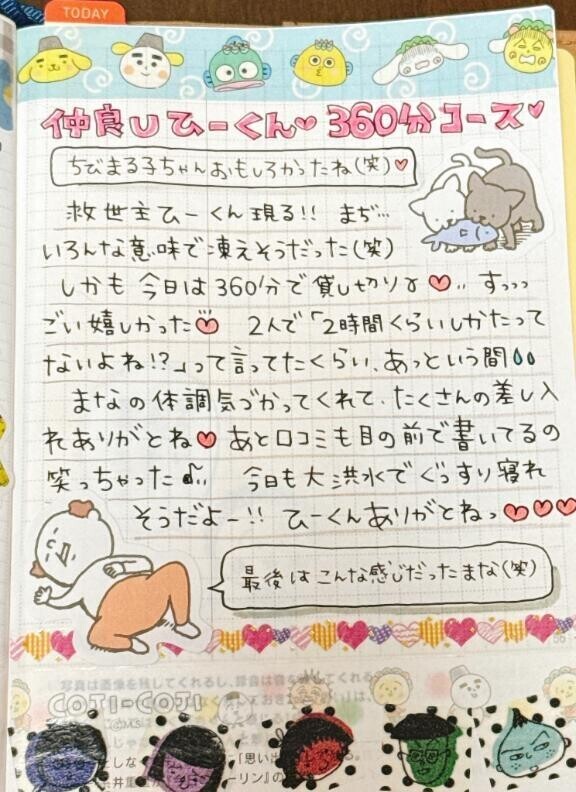 TODAY
仲良しひーくん♡ 360分コース♡
ちびまる子ちゃんおもしろかったね(笑)♡
救世主ひーくん現る!! まぢ…
いろんな意味で凍えそうだった(笑)
しかも 今日は360分で貸し切り♡‥ すっっっ
ごい嬉しかった♡ 2人で「2時間くらいしかたって
ないよね!?」って言ってたくらい、あっという間
まなの体調気づかってくれて、たくさんの差し入
れありがとね♡ あと口コミも目の前で書いてるの
笑っちゃった♪‥ 今日も大洪水でぐっすり寝れ
そうだよー!! ひーくんありがとねっ♡♡♡
最後はこんな感じだったまな(笑)
写真は画像を残してくれるし、
COJI-COJI
「思い出
糸井重